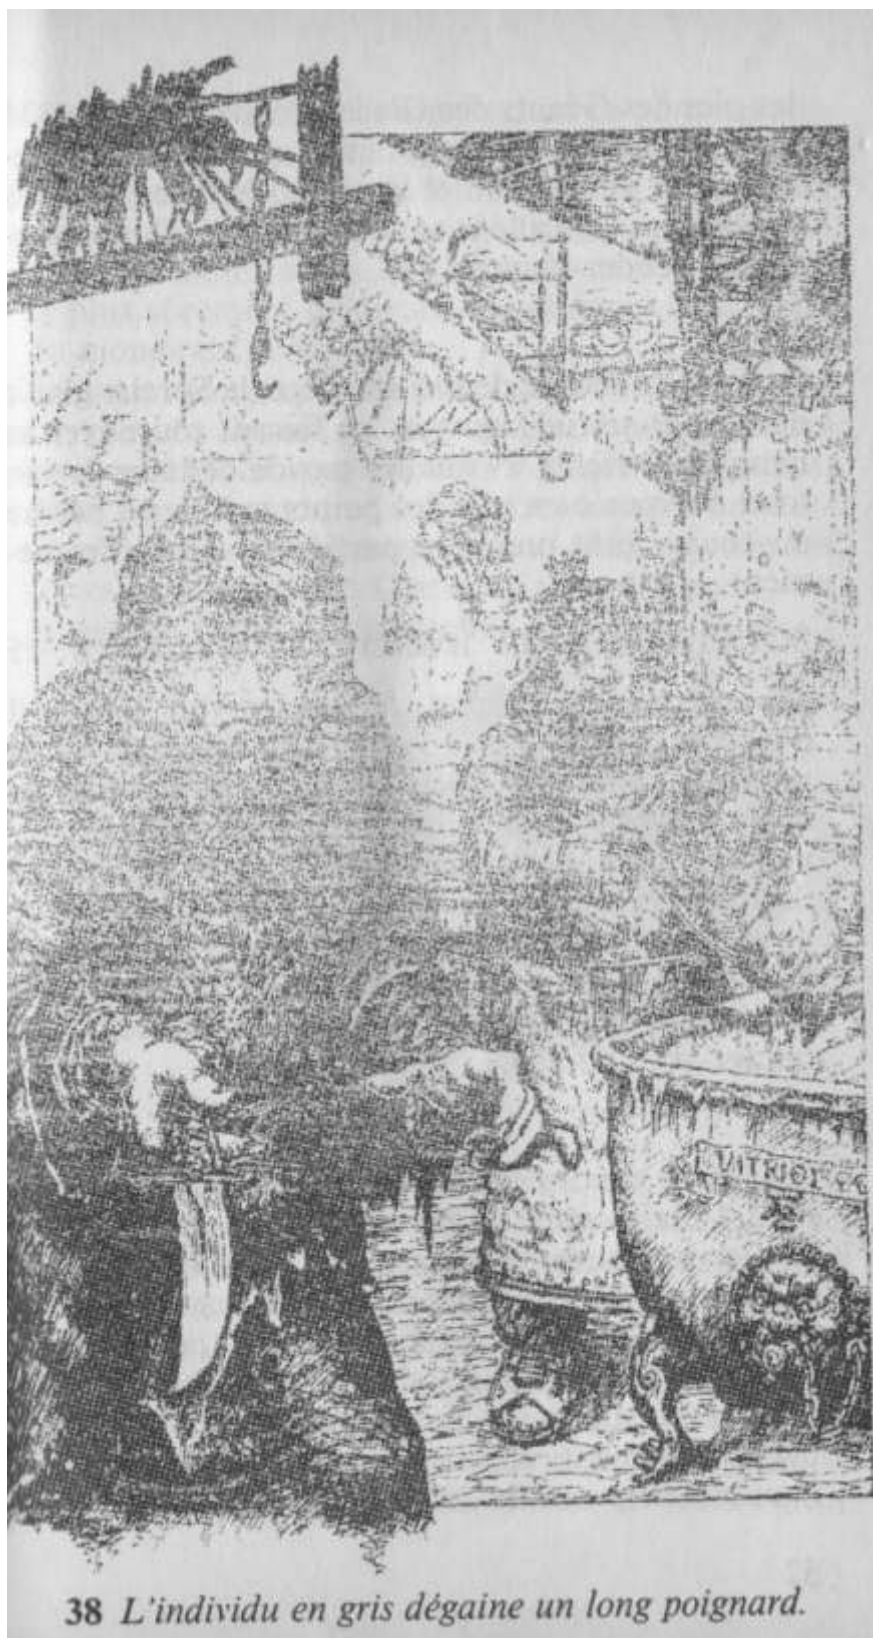 VITRIOL
38 L'individu en gris dégaine un long poignard.